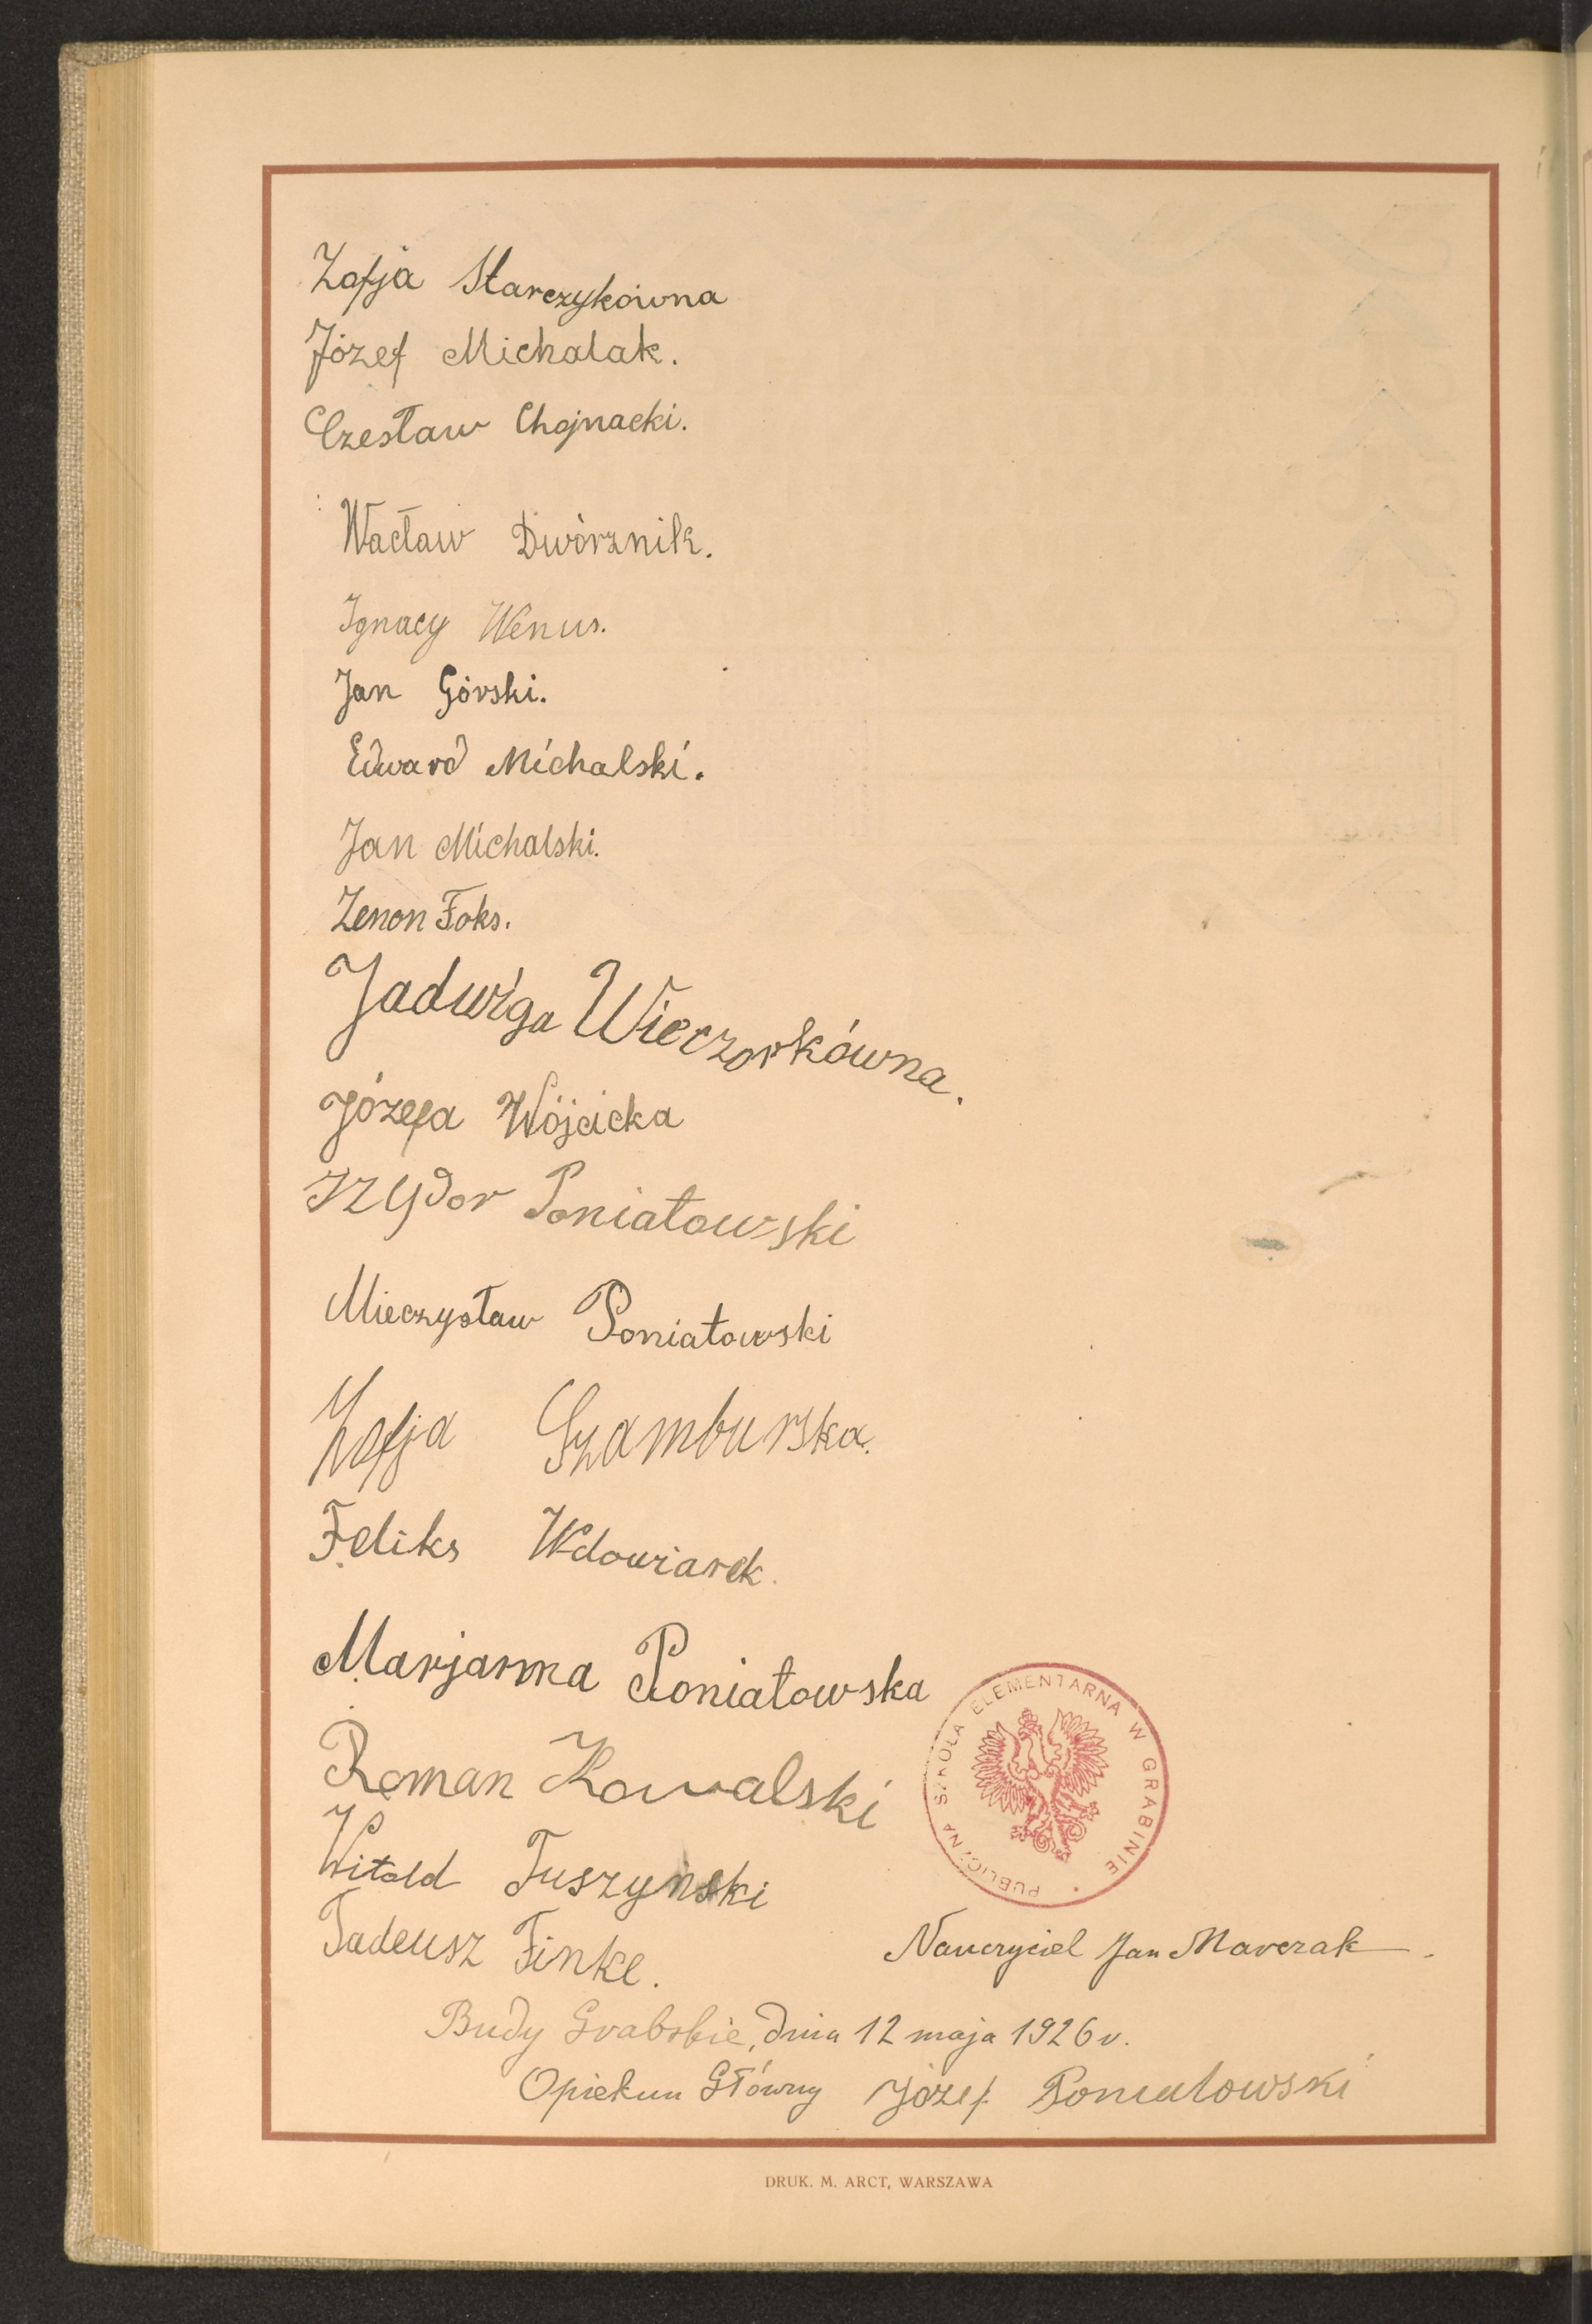 Zofja Starczykówna
Józef Michalak.
Czesław Chojnacki.
Wacław Dwórznik.
Ignacy Wenus.
Jan Górski.
Edward Michalski.
Jan Michalski.
Zenon Foks.
Jadwiga Wieczorkówna.
Józefa Wójcicka
Izydor Poniatowski
Mieczysław Poniatowski
Zofja Szamburska.
Feliks Wdowiarek.
Marjanna Poniatowska
Roman Kowalski
Witold Tuszyński
Tadeusz Finke.
PUBLICZNA SZKOŁA ELEMENTARNA W GRABINIE
Nauczyciel Jan Marczak.
Budy Grabskie, dnia 12 maja 1926 r.
Opiekun Główny Józef Poniatowski
DRUK. M. ARCT, WARSZAWA